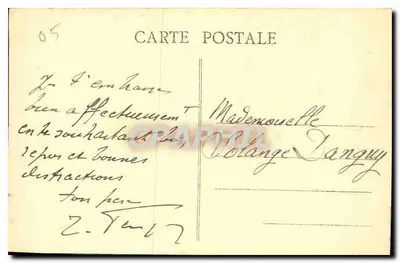 05
CARTE POSTALE
Je t'embrasse
bien affectueusement
en te souhaitant bon
repos et bonnes
distractions
ton père
Mademoiselle
Solange Dangny